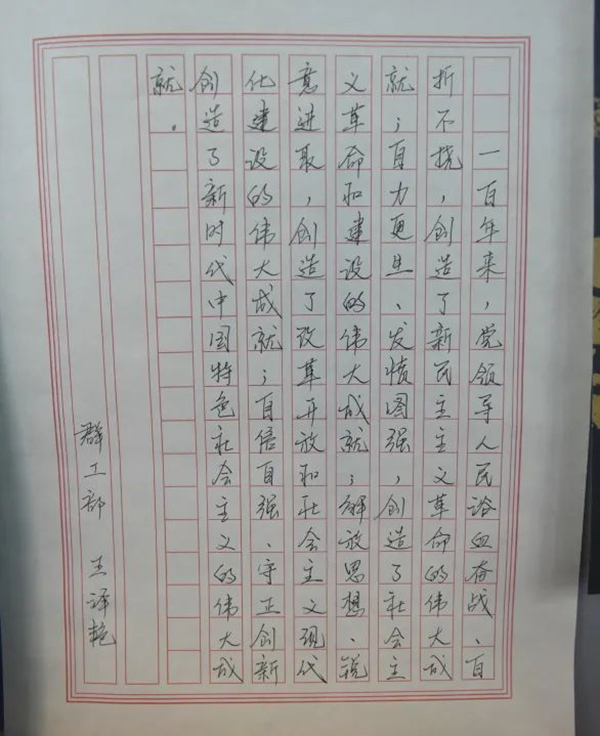 一百年来，党领导人民浴血奋战、百
折不挠，创造了新民主主义革命的伟大成
就；自力更生、发愤图强，创造了社会主
义革命和建设的伟大成就；解放思想、锐
意进取，创造了改革开放和社会主义现代
化建设的伟大成就；自信自强、守正创新
创造了新时代中国特色社会主义的伟大成
就。
群工部 王译艳